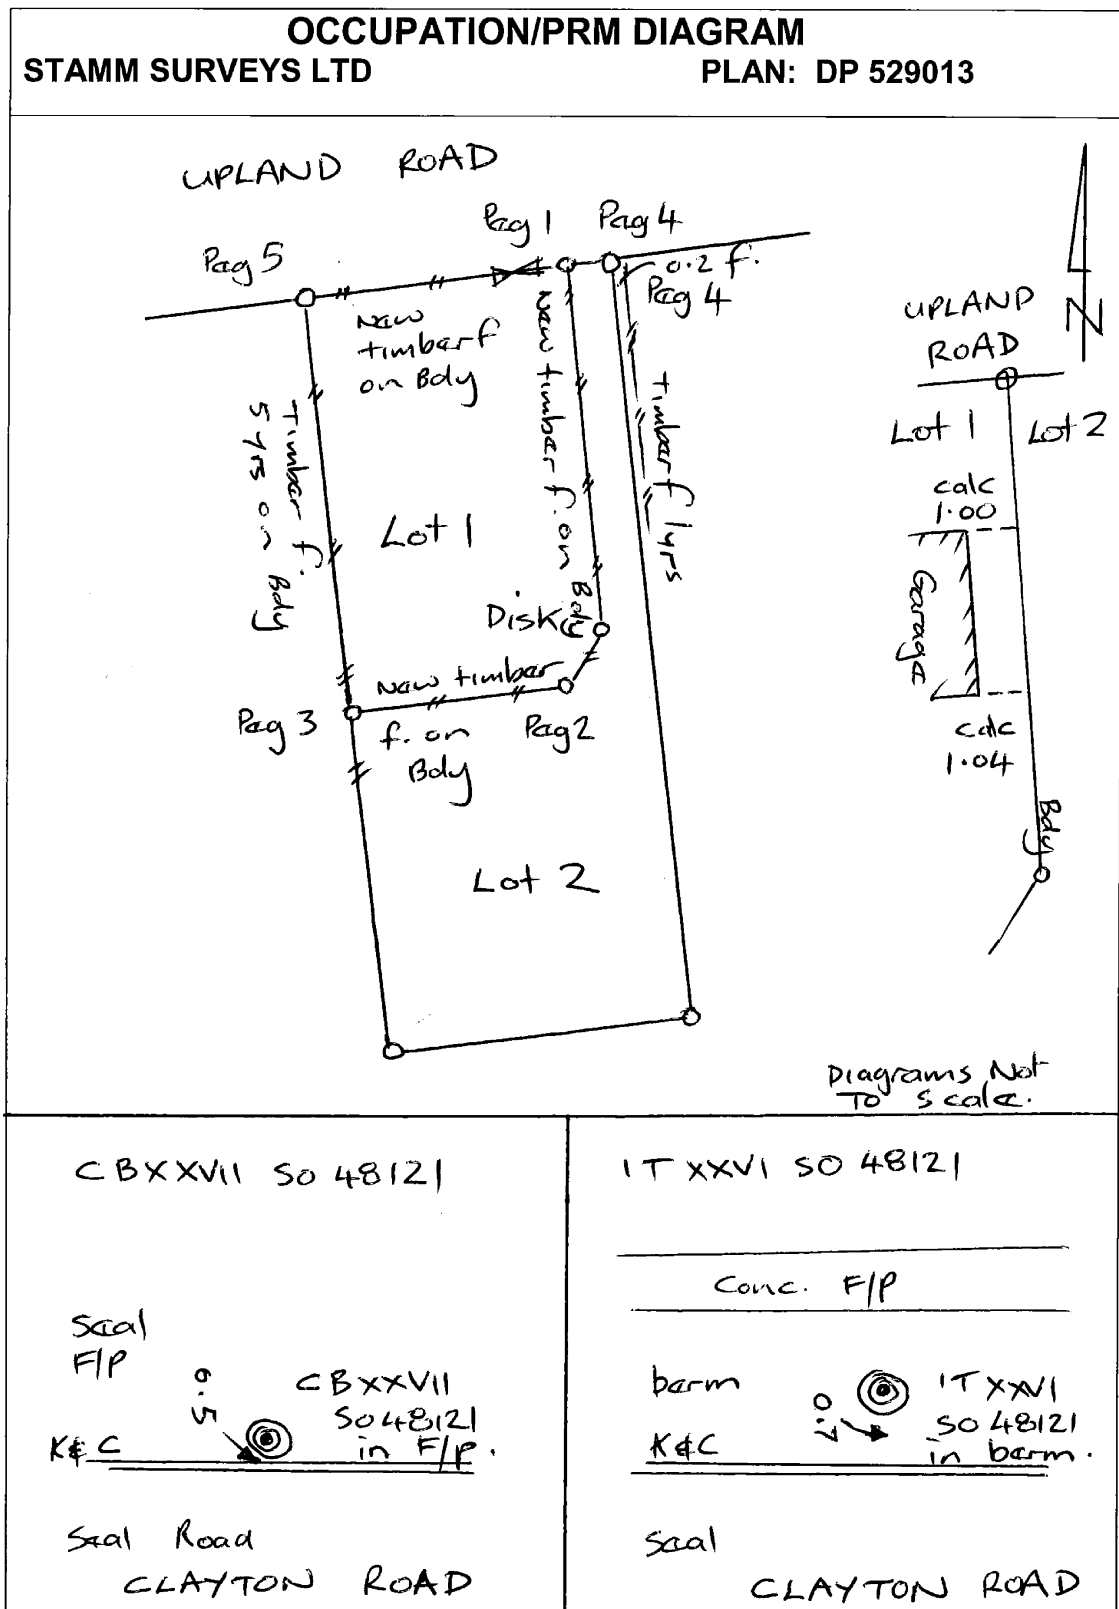 OCCUPATION/PRM DIAGRAM
STAMM SURVEYS LTD PLAN: DP 529013
UPLAND ROAD
Peg 5
Peg 1
Peg 4
0.2 f.
Peg 4
New
timber f
on Bdy
Timber f.
5 yrs on Bdy
New timber f. on Bdy
Timber f 1yrs
Lot 1
Disk
New timber
f. on
Bdy
Peg 3
Peg 2
Lot 2
N
UPLAND
ROAD
Lot 1
Lot 2
calc
1.00
Garage
calc
1.04
Bdy
Diagrams Not
To Scale.
CBXXVII SO 48121
Seal
F/P
6.5
CBXXVII
SO 48121
in F/P.
K&C
Seal Road
CLAYTON ROAD
IT XXVI SO 48121
Conc. F/P
berm
0.7
IT XXVI
SO 48121
in berm.
K&C
Seal
CLAYTON ROAD